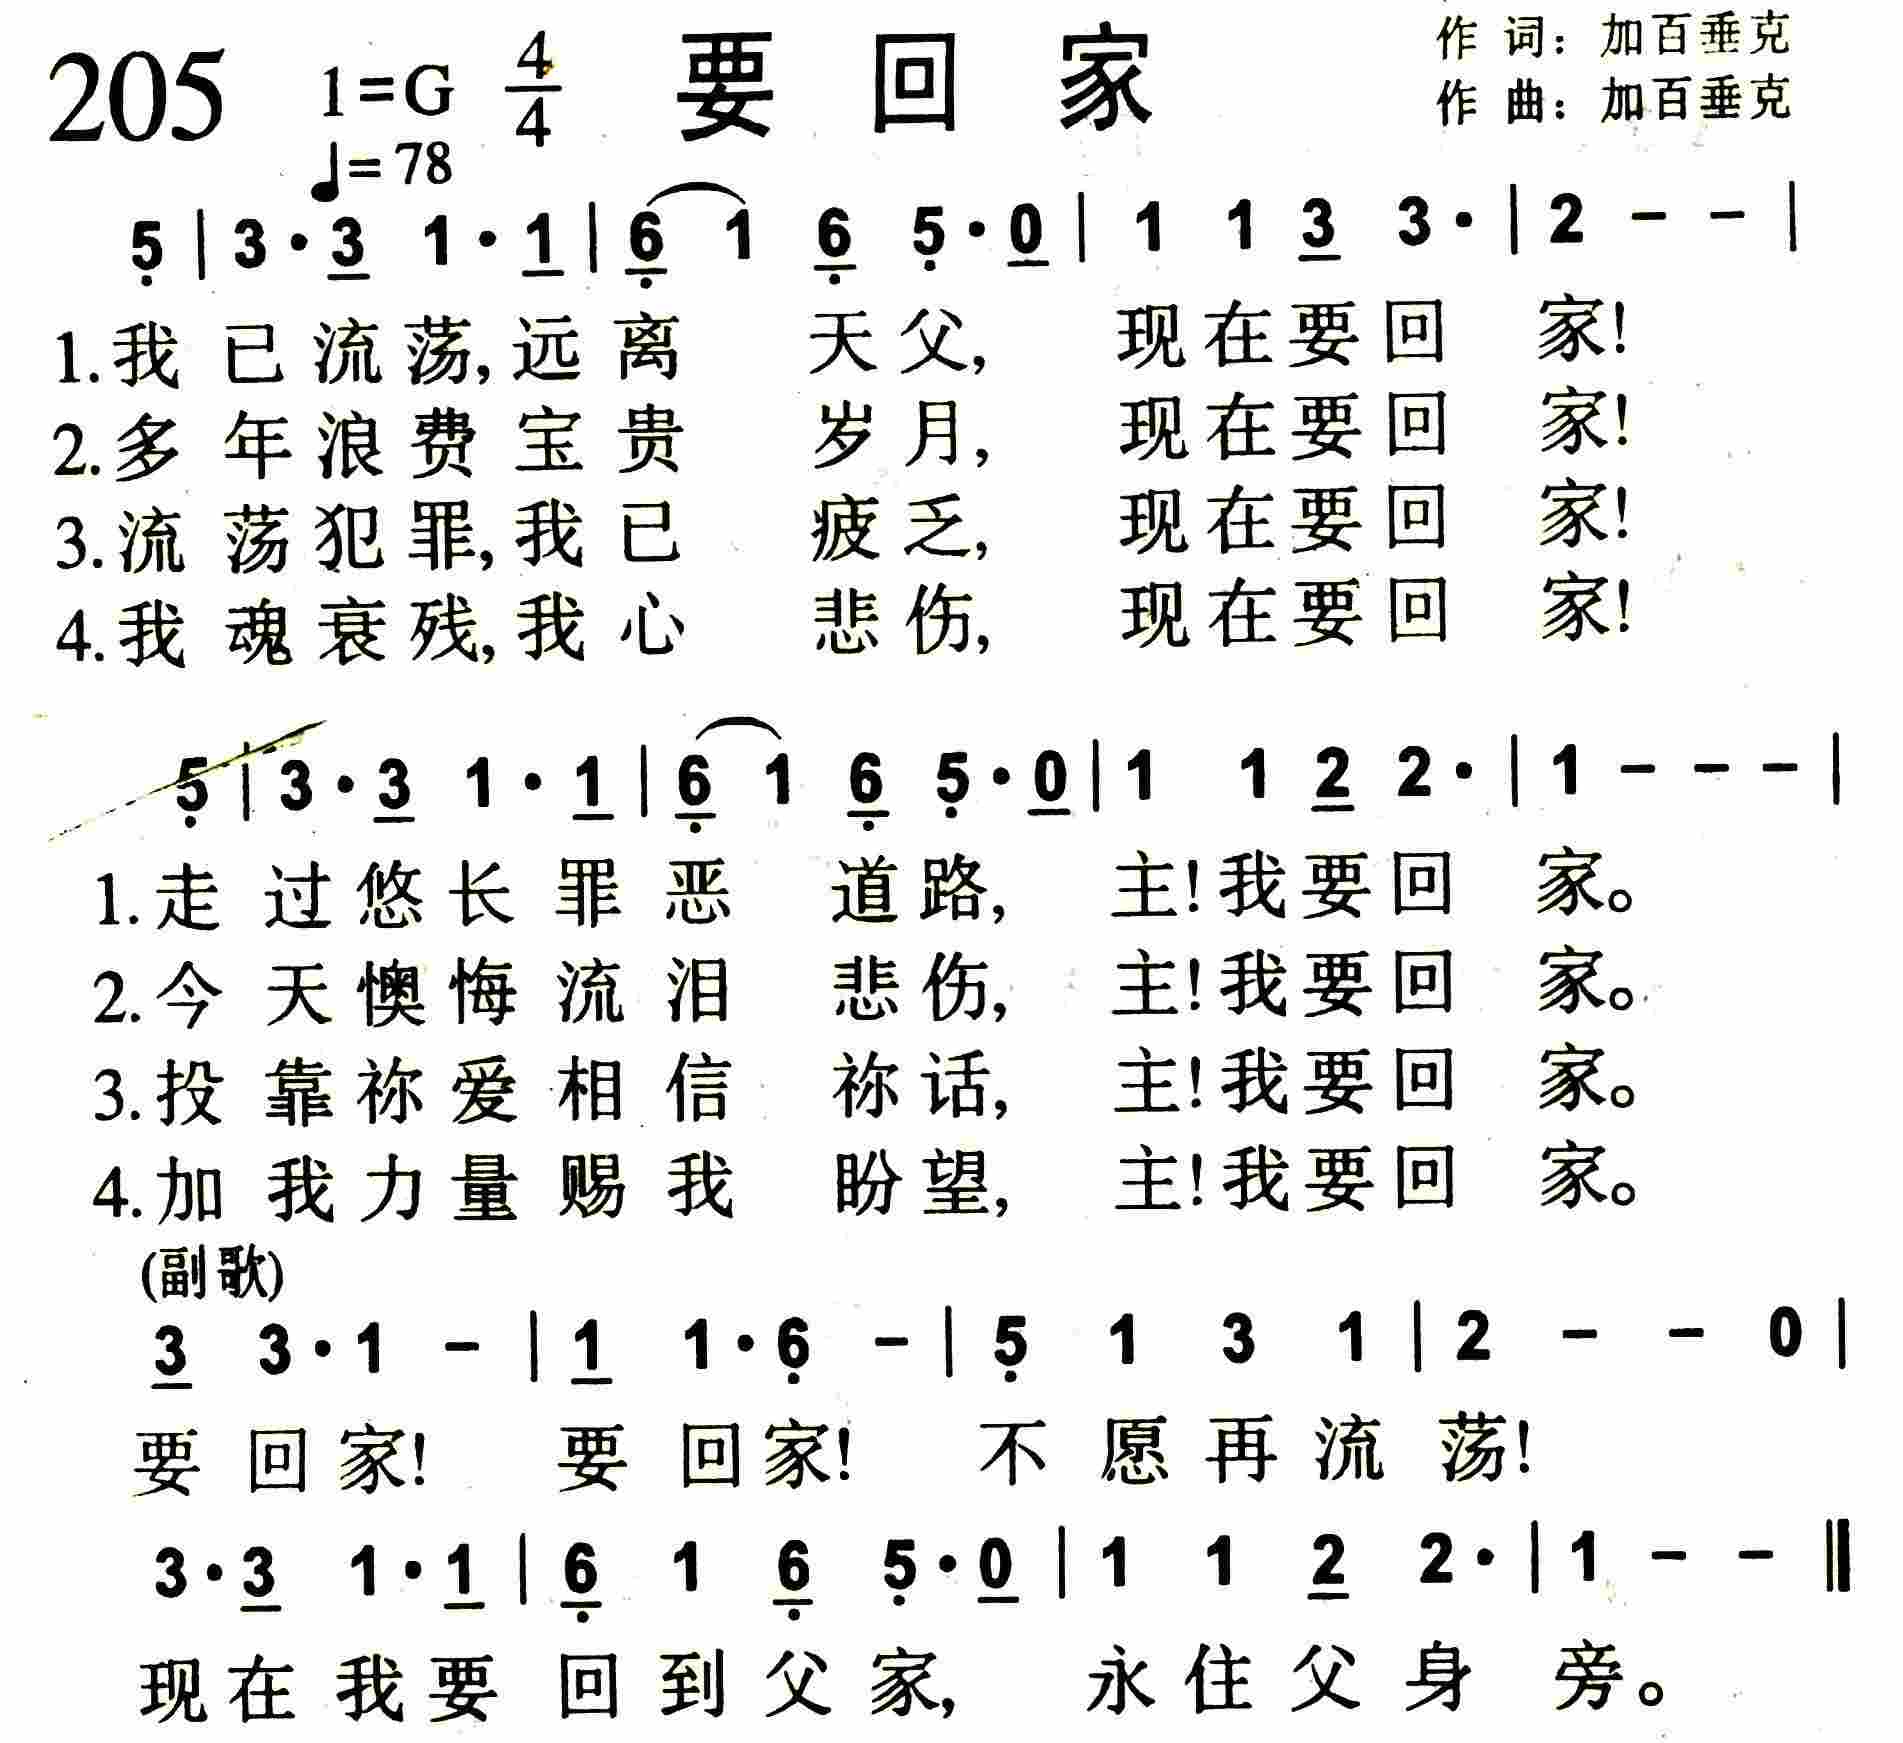 205 1=G 4/4 要回家 作词：加百垂克
♩=78 作曲：加百垂克
5̣ | 3·3 1·1 | 6̣ 1 6̣ 5̣·0 | 1 1 3 3· | 2 - - |
1.我已流荡,远离天父,现在要回家!
2.多年浪费宝贵岁月,现在要回家!
3.流荡犯罪,我已疲乏,现在要回家!
4.我魂衰残,我心悲伤,现在要回家!
5̣ | 3·3 1·1 | 6̣ 1 6̣ 5̣·0 | 1 1 2 2· | 1 - - - |
1.走过悠长罪恶道路,主!我要回家。
2.今天懊悔流泪悲伤,主!我要回家。
3.投靠祢爱相信祢话,主!我要回家。
4.加我力量赐我盼望,主!我要回家。
(副歌)
3 3·1 - | 1 1·6̣ - | 5̣ 1 3 1 | 2 - - 0 |
要回家!要回家!不愿再流荡!
3·3 1·1 | 6̣ 1 6̣ 5̣·0 | 1 1 2 2· | 1 - - ‖
现在我要回到父家,永住父身旁。